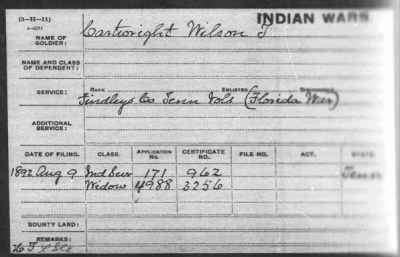 (3-33-11)
INDIAN WARS
NAME OF SOLDIER: Cartwright Wilson T.
NAME AND CLASS OF DEPENDENT:
SERVICE: RANK ENLISTED DISCHARGED
Findleys Co Tenn Vols (Florida War)
ADDITIONAL SERVICE:
DATE OF FILING. CLASS. APPLICATION No. CERTIFICATE No. FILE NO. ACT. STATE
1892 Aug 9 Ind Sur 171 962 Tenn
Widow 4988 3256
BOUNTY LAND:
REMARKS: